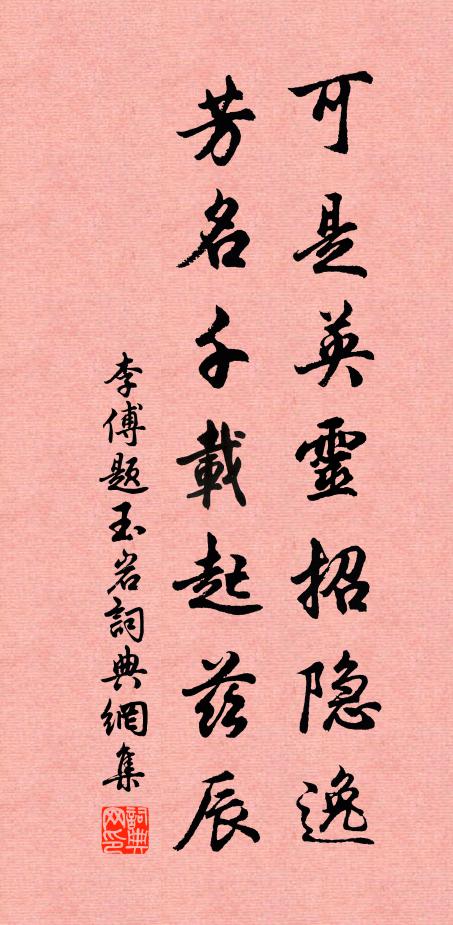 可是英靈招隐逸
芳名千載起茲辰
李傅題玉岩詞典網集
詞典
网印